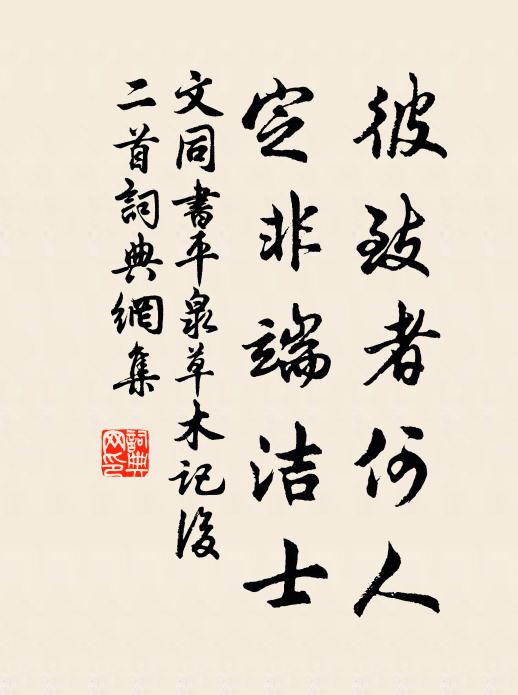 彼致者何人
定非端洁士
文同書平泉草木記後
二首詞典網集
詞典
网印